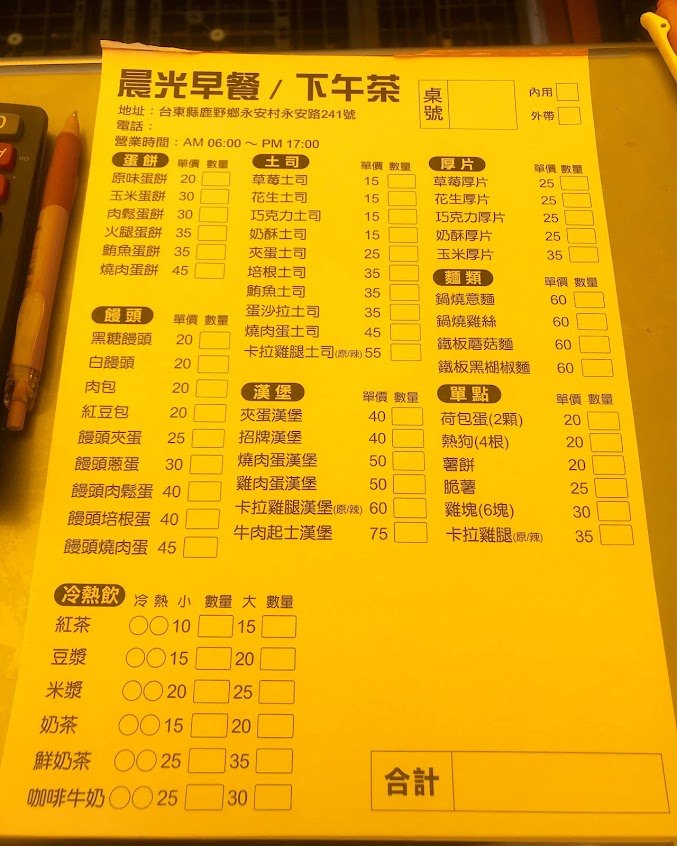 晨光早餐 / 下午茶
桌號
內用
外帶
地址：台東縣鹿野鄉永安村永安路241號
電話：
營業時間：AM 06:00 ～ PM 17:00
蛋餅 單價 數量
原味蛋餅 20
玉米蛋餅 30
肉鬆蛋餅 30
火腿蛋餅 35
鮪魚蛋餅 35
燒肉蛋餅 45
饅頭 單價 數量
黑糖饅頭 20
白饅頭 20
肉包 20
紅豆包 20
饅頭夾蛋 25
饅頭蔥蛋 30
饅頭肉鬆蛋 40
饅頭培根蛋 40
饅頭燒肉蛋 45
土司 單價 數量
草莓土司 15
花生土司 15
巧克力土司 15
奶酥土司 15
夾蛋土司 25
培根土司 35
鮪魚土司 35
蛋沙拉土司 35
燒肉蛋土司 45
卡拉雞腿土司(原/辣) 55
漢堡 單價 數量
夾蛋漢堡 40
招牌漢堡 40
燒肉蛋漢堡 50
雞肉蛋漢堡 50
卡拉雞腿漢堡(原/辣) 60
牛肉起士漢堡 75
厚片 單價 數量
草莓厚片 25
花生厚片 25
巧克力厚片 25
奶酥厚片 25
玉米厚片 35
麵類 單價 數量
鍋燒意麵 60
鍋燒雞絲 60
鐵板蘑菇麵 60
鐵板黑楜椒麵 60
單點 單價 數量
荷包蛋(2顆) 20
熱狗(4根) 20
薯餅 20
脆薯 25
雞塊(6塊) 30
卡拉雞腿(原/辣) 35
冷熱飲 冷 熱 小 數量 大 數量
紅茶 10 15
豆漿 15 20
米漿 20 25
奶茶 15 20
鮮奶茶 25 35
咖啡牛奶 25 30
合計